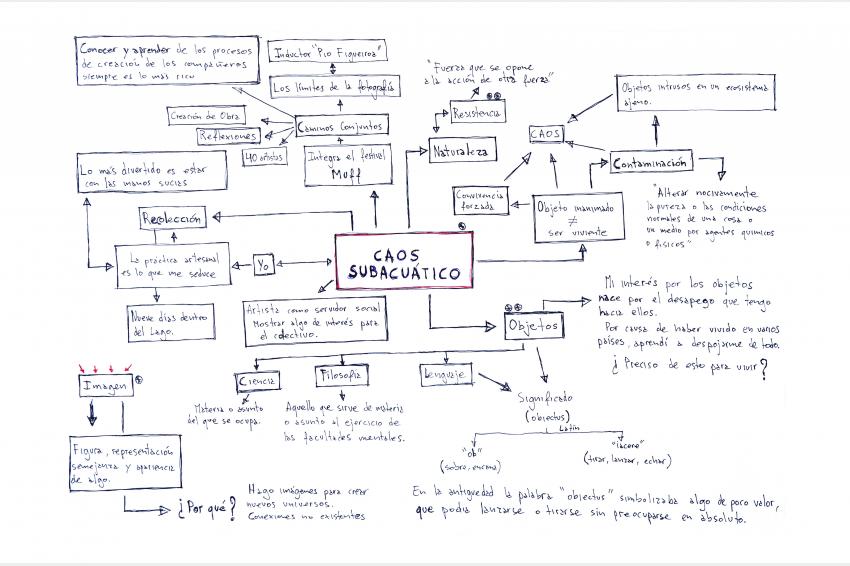 Conocer y aprender de los procesos
de creación de los compañeros
siempre es lo más rico
Inductor "Pio Figueiroa"
Los límites de la fotografía
Creación de Obra
Reflexiones
40 artistas
Caminos Conjuntos
Integra el festival
Muff
"Fuerza que se opone
a la acción de otra fuerza"
Resistencia
Naturaleza
CAOS
Objetos intrusos en un ecosistema
ajeno.
Contaminación
Convivencia
forzada
Objeto inanimado
≠
ser viviente
"Alterar nocivamente
la pureza o las condiciones
normales de una cosa o
un medio por agentes químicos
o físicos"
Lo más divertido es estar
con las manos sucias
Recolección
La práctica artesanal
es lo que me seduce
Yo
Nueve días dentro
del Lago.
CAOS
SUBACUÁTICO
Artista como servidor social
Mostrar algo de interés para
el colectivo.
Objetos
Mi interés por los objetos
nace por el desapego que tengo
hacia ellos.
Por causa de haber vivido en varios
países, aprendí a despojarme de todo.
¿Preciso de esto para vivir?
Imagen
Figura, representación
semejanza y apariencia
de algo.
¿Por qué?
Hago imágenes para crear
nuevos universos.
Conexiones no existentes
Ciencia
Materia o asunto
del que se ocupa.
Filosofía
Aquello que sirve de materia
o asunto al ejercicio de
las facultades mentales.
Lenguaje
Significado
(obiectus)
Latín
"ob"
(sobre, encima)
"iacere"
(tirar, lanzar, echar)
En la antigüedad la palabra "obiectus" simbolizaba algo de poco valor,
que podía lanzarse o tirarse sin preocuparse en absoluto.